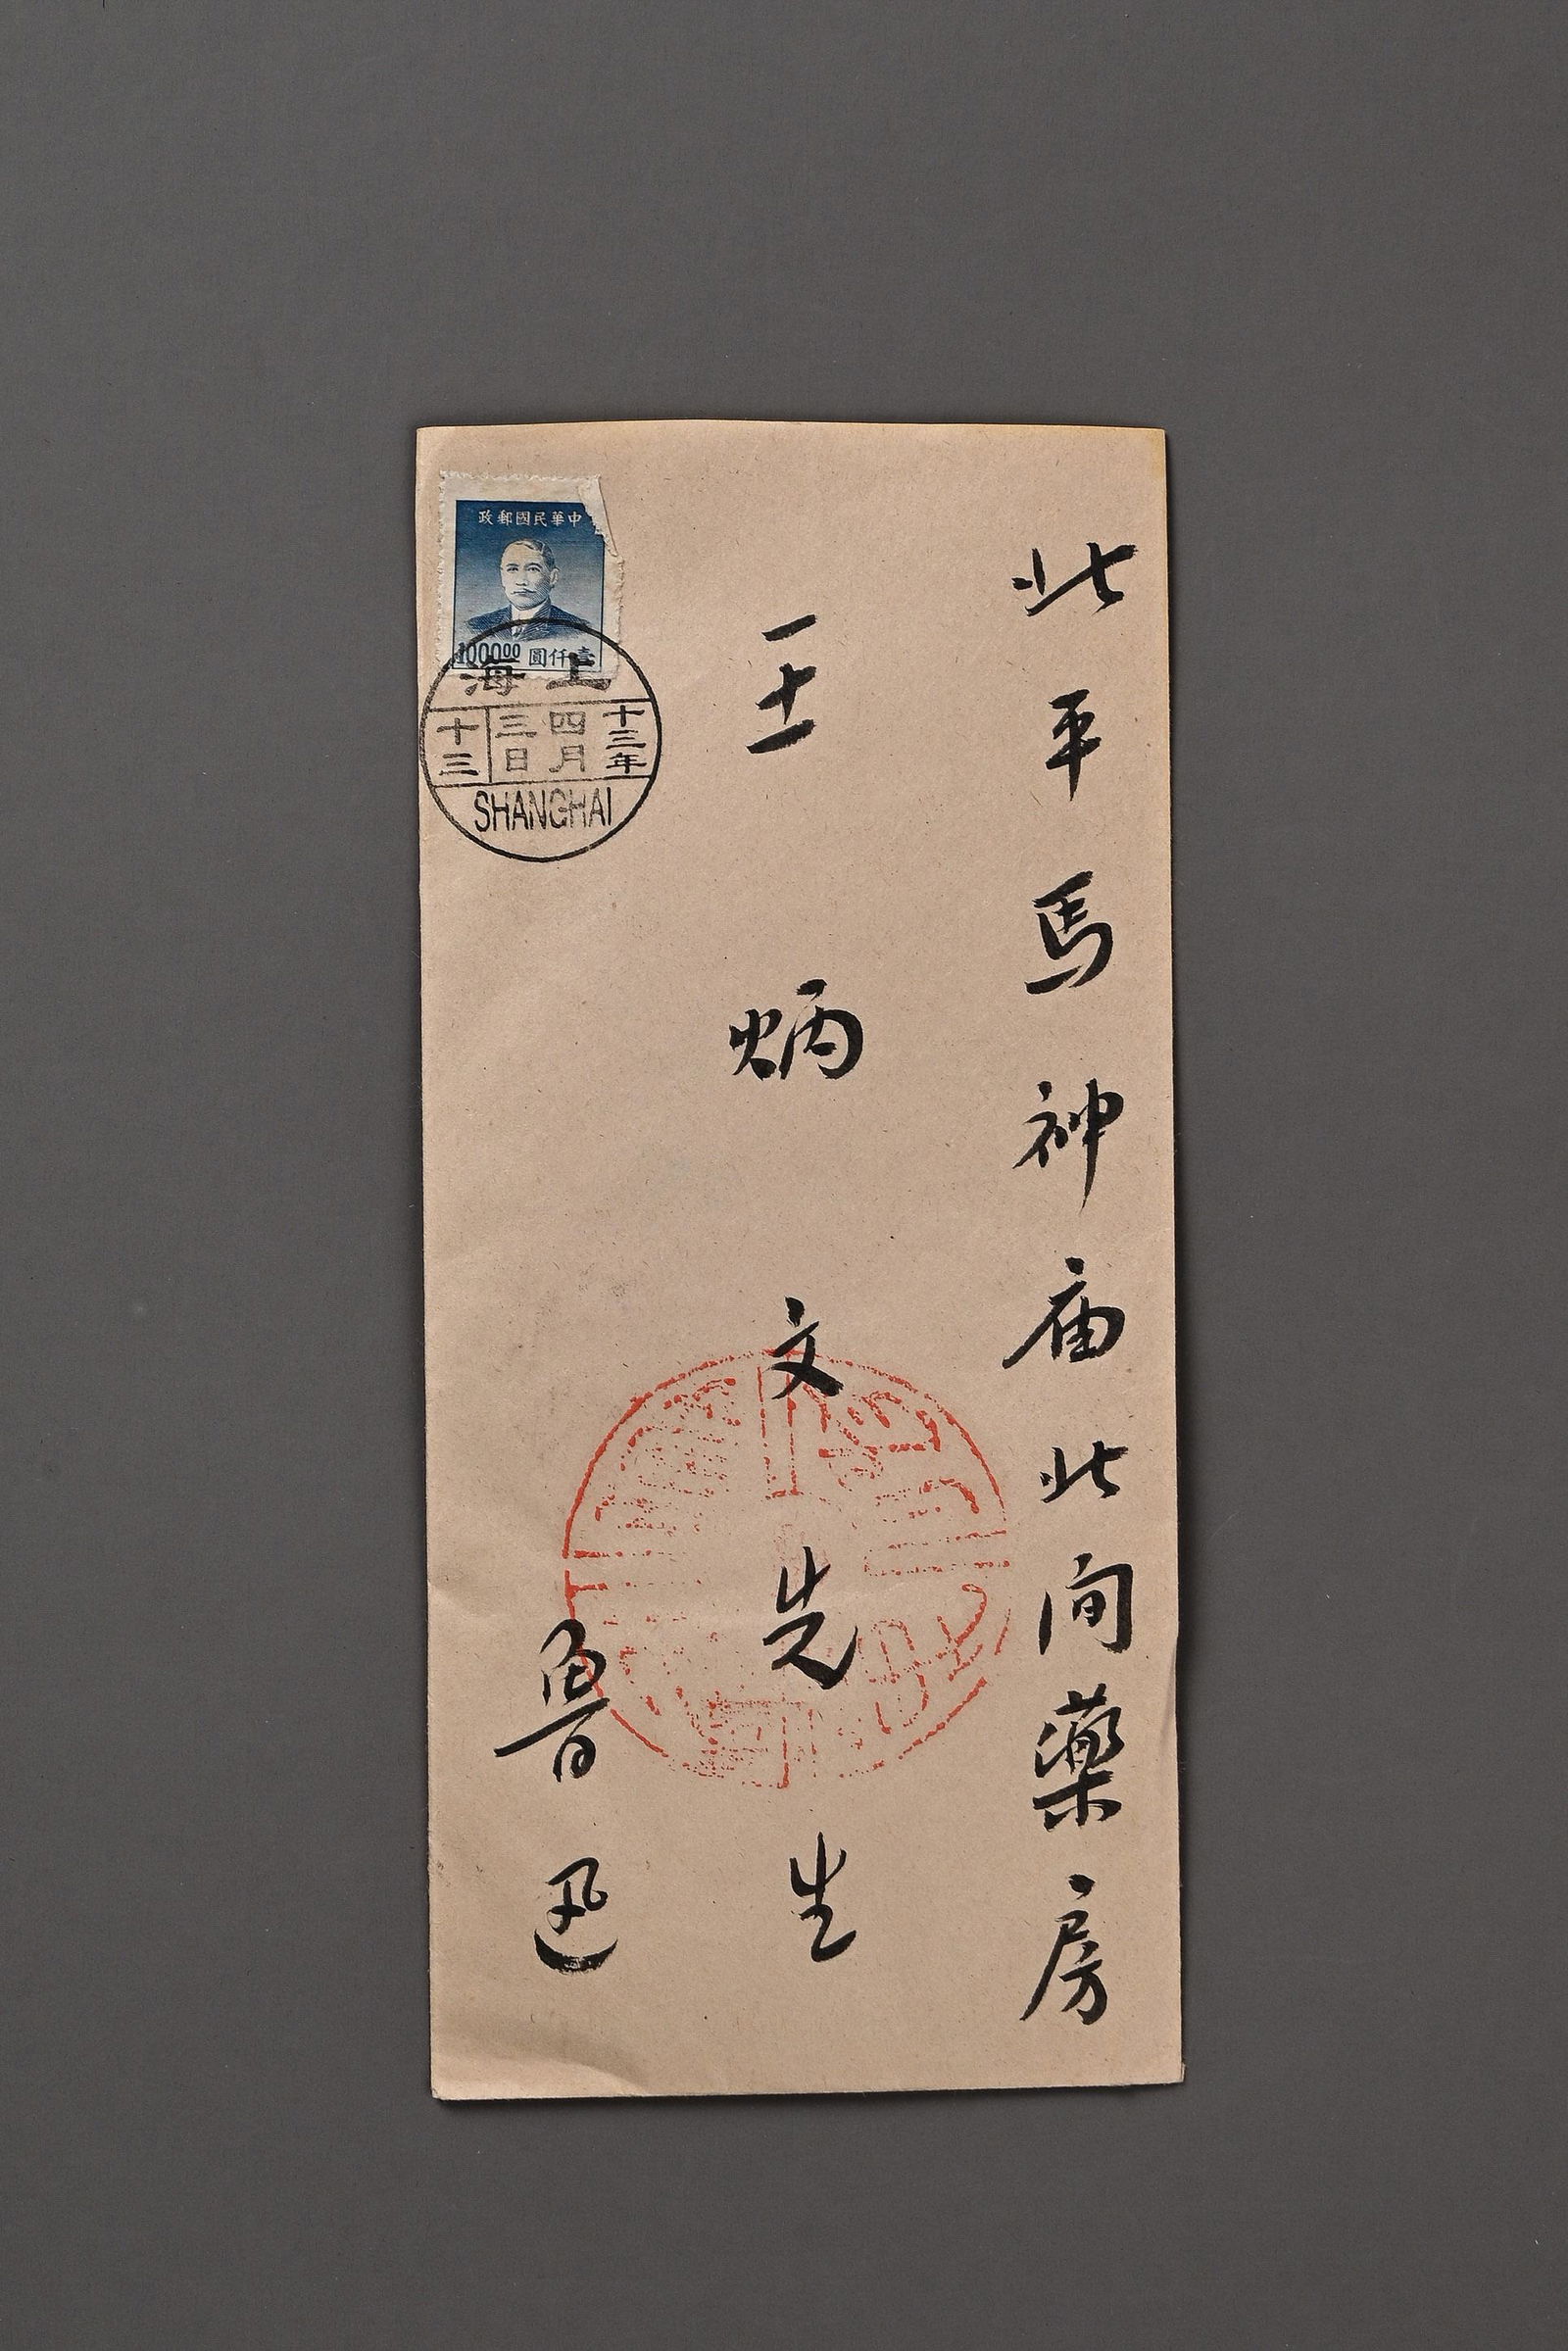 北平馬神庙北间藥房
王炳文先生
魯迅
中華民國郵政
1000.00 壹仟圓
上海
十三年
四月
三日
十三
SHANGHAI